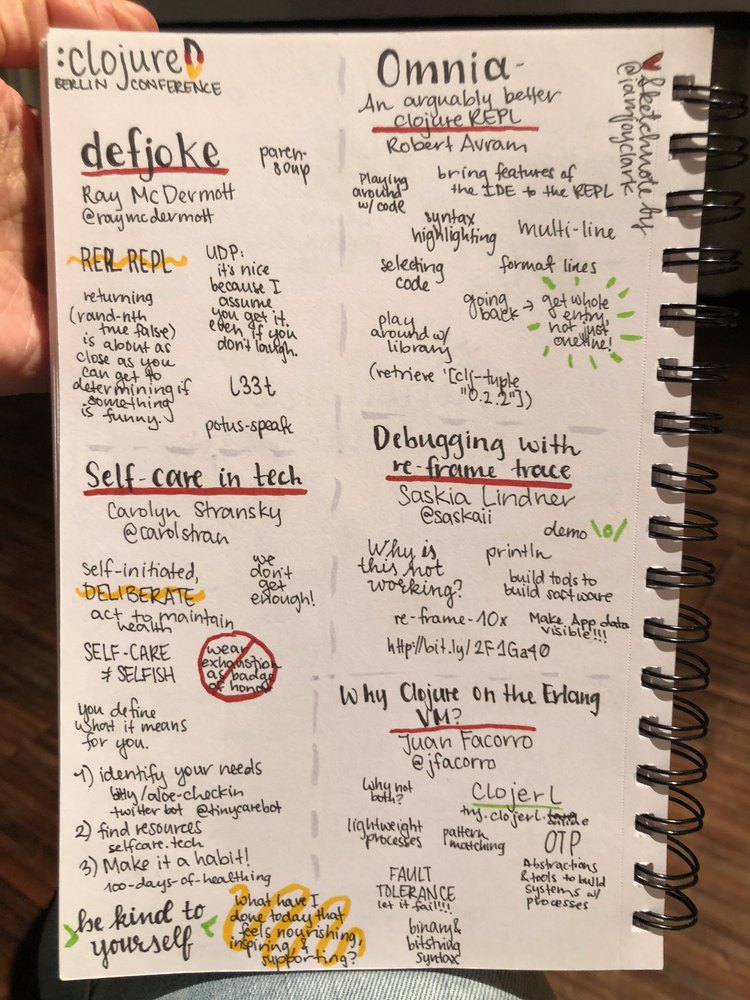 :clojureD
BERLIN CONFERENCE
defjoke
Ray McDermott
@raymcdermott
paren-
soup
REPL REPL
returning
(rand-nth
true false)
is about as
close as you
can get to
determining if
something
is funny.
UDP:
it's nice
because I
assume
you get it.
even if you
don't laugh.
l33t
potus-speak
Self-care in tech
Carolyn Stransky
@carolstran
self-initiated,
DELIBERATE
act to maintain
health
we
don't
get
enough!
SELF-CARE
≠ SELFISH
wear
exhaustion
as badge
of honor
you define
what it means
for you.
1) identify your needs
bitly/aloe-checkin
twitter bot @tinycarebot
2) find resources
selfcare.tech
3) Make it a habit!
100-days-of-healthing
be kind to
yourself
what have I
done today that
feels nourishing,
inspiring &
supporting?
Omnia-
An arguably better
clojure REPL
Robert Avram
Sketchnote by
@iamjoyclark
Playing
around
w/ code
bring features of
the IDE to the REPL
syntax
highlighting
multi-line
selecting
code
format lines
going
back →
get whole
entry,
not just
one line!
play
around w/
library
(retrieve '[clj-tuple
"0.2.2"])
Debugging with
re-frame trace
Saskia Lindner
@saskaii
demo \o/
Why is
this not
working?
println
build tools to
build software
re-frame-10x
Make App data
visible!!!
http://bit.ly/2F1Ga40
Why Clojure on the Erlang
VM?
Juan Facorro
@jfacorro
Why not
both?
ClojerL
try.clojerl.online
lightweight
processes
pattern
matching
OTP
Abstractions
& tools to build
systems w/
processes
FAULT
TOLERANCE
let it fail!!!
binary &
bitstring
syntax